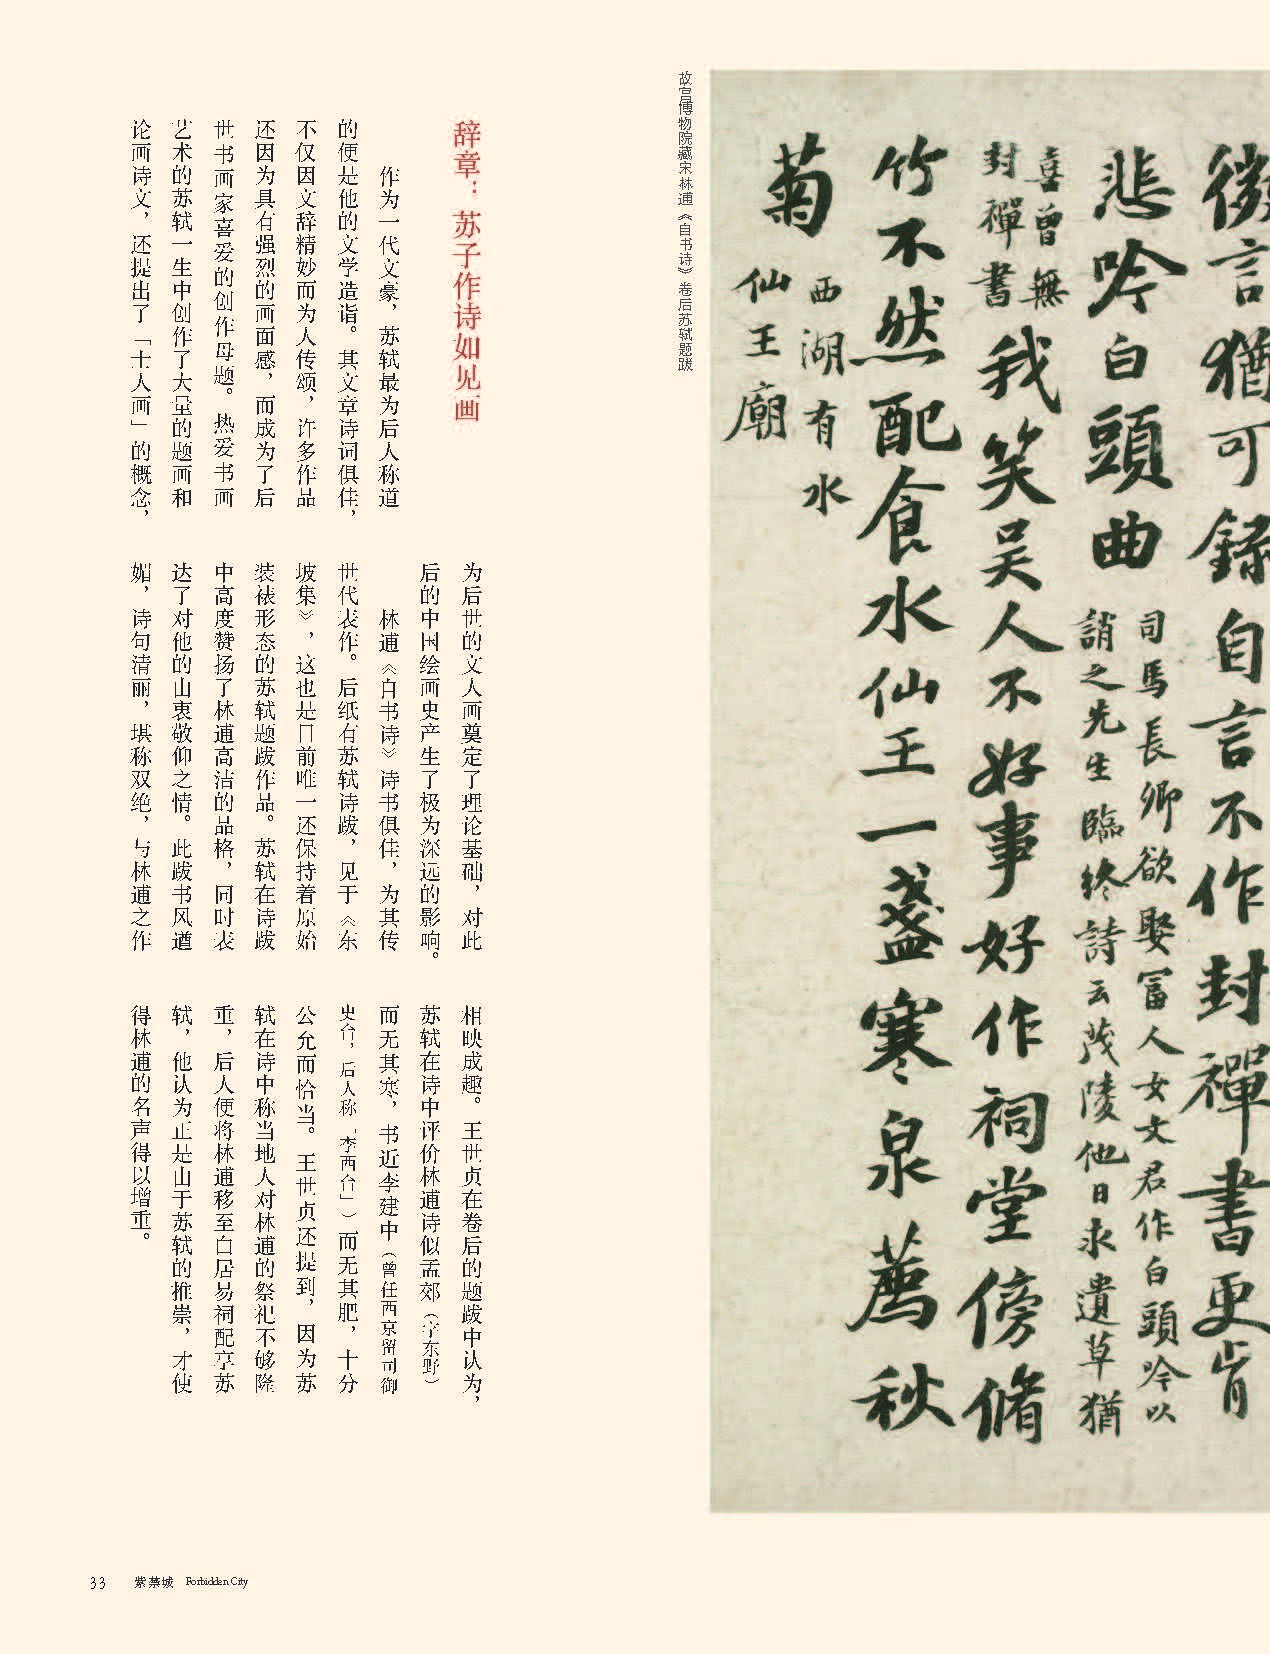 微言猶可録自言不作封禪書更肯
悲吟白頭曲
司馬長卿欲娶冨人女文君作白頭吟以
誚之先生臨終詩云茂陵他日求遺草猶
喜曽無
封禪書
我笑吴人不好事好作祠堂傍脩
竹不然配食水仙王一盞寒泉薦秋
菊
西湖有水
仙王廟
故宫博物院藏宋林逋《自书诗》卷后苏轼题跋
辞章：苏子作诗如见画
作为一代文豪，苏轼最为后人称道
的便是他的文学造诣。其文章诗词俱佳，
不仅因文辞精妙而为人传颂，许多作品
还因为具有强烈的画面感，而成为了后
世书画家喜爱的创作母题。热爱书画
艺术的苏轼一生中创作了大量的题画和
论画诗文，还提出了「士人画」的概念，
为后世的文人画奠定了理论基础，对此
后的中国绘画史产生了极为深远的影响。
林逋《自书诗》诗书俱佳，为其传
世代表作。后纸有苏轼诗跋，见于《东
坡集》，这也是目前唯一还保持着原始
装裱形态的苏轼题跋作品。苏轼在诗跋
中高度赞扬了林逋高洁的品格，同时表
达了对他的由衷敬仰之情。此跋书风遒
媚，诗句清丽，堪称双绝，与林逋之作
相映成趣。王世贞在卷后的题跋中认为，
苏轼在诗中评价林逋诗似孟郊（字东野）
而无其寒，书近李建中（曾任西京留司御
史台，后人称「李西台」）而无其肥，十分
公允而恰当。王世贞还提到，因为苏
轼在诗中称当地人对林逋的祭祀不够隆
重，后人便将林逋移至白居易祠配享苏
轼，他认为正是由于苏轼的推崇，才使
得林逋的名声得以增重。
33 紫禁城 Forbidden City